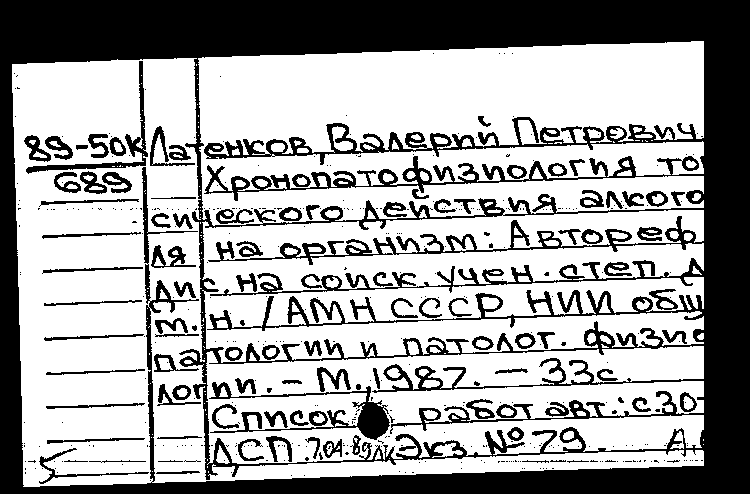 89-50К Латенков, Валерий Петрович
689 Хронопатофизиология то
сического действия алкого
ля на организм: Автореф
дис. на соиск. учен. степ. д
м. н. / АМН СССР, НИИ общ
патологии и патолог. физио
логии. - М., 1987. - 33с.
Список работ авт.: с.30-
ДСП. 7.04.89 Экз. № 79. А.
5